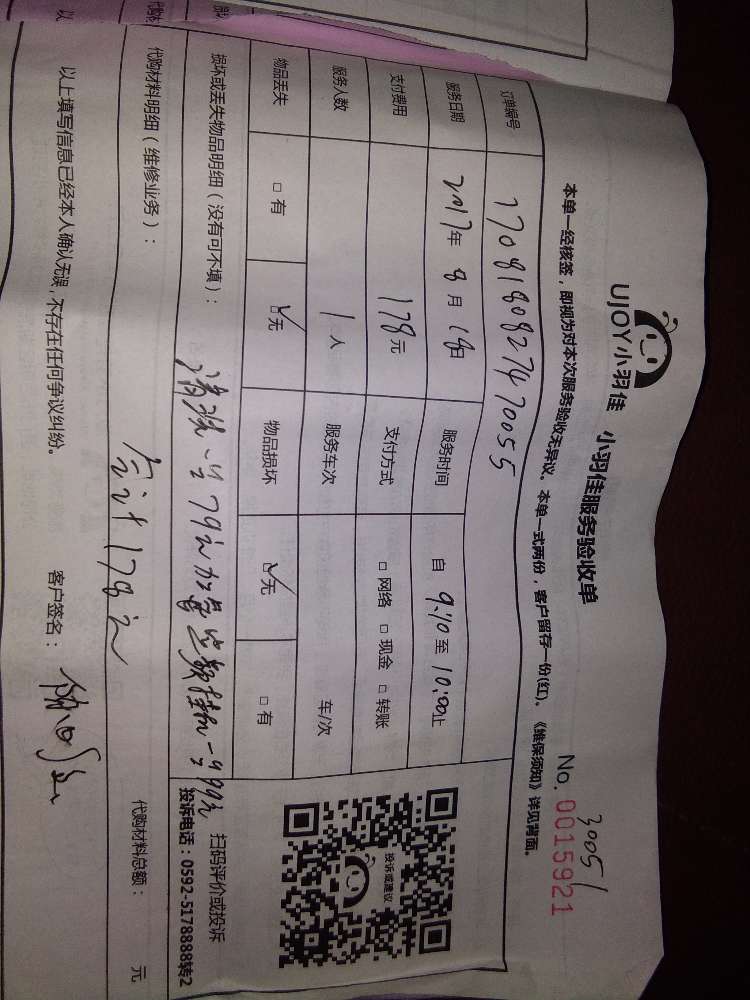 UJOY小羽佳 小羽佳服务验收单
30051
No. 0015921
本单一经核签，即视为对本次服务验收无异议。本单一式两份，客户留存一份(红)。《维保须知》详见背面。
订单编号 17081808274 70055
服务日期 2017年8月18日 服务时间 自 9:10 至 10:00止
支付费用 178元 支付方式 □ 网络 □ 现金 □ 转账
服务人数 1人 服务车次 车/次
物品丢失 □ 有 ☑ 无 物品损坏 ☑ 无 □ 有
投诉或建议
扫码评价或投诉
投诉电话：0592-5178888转2
损坏或丢失物品明细（没有可不填）：
清洗一台79元加
挂机一台99元
代购材料明细（维修业务）： 代购材料总额： 元
合计178元
以上填写信息已经本人确认无误，不存在任何争议纠纷。 客户签名：